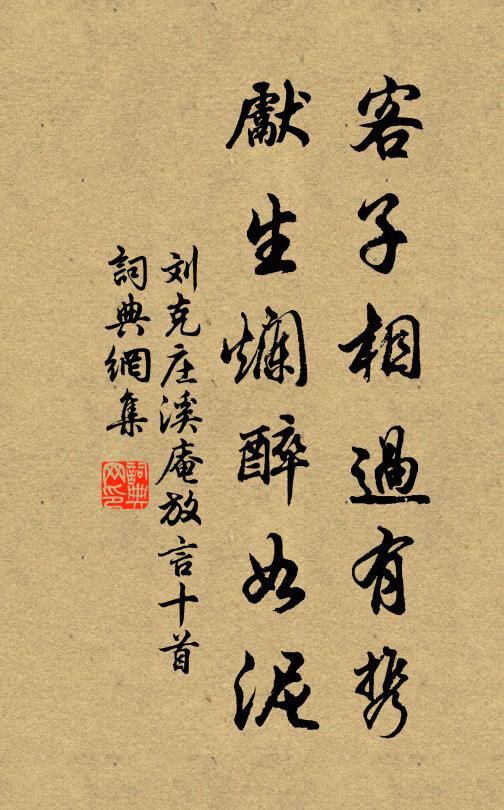 客子相過有携
獻生爛醉如泥
刘克庄溪庵放言十首
詞典網集
詞典网印